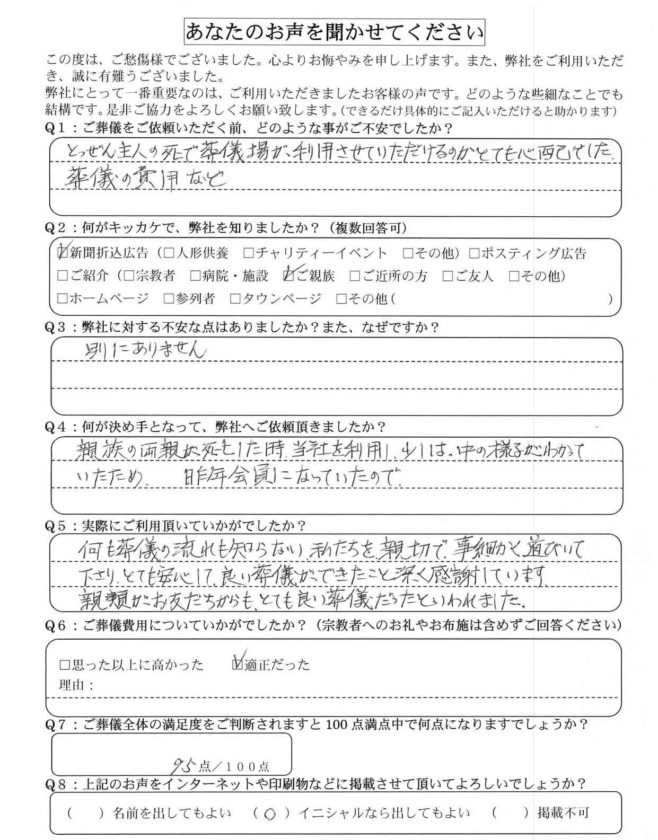 あなたのお声を聞かせてください
この度は、ご愁傷様でございました。心よりお悔やみを申し上げます。また、弊社をご利用いただ
き、誠に有難うございました。
弊社にとって一番重要なのは、ご利用いただきましたお客様の声です。どのような些細なことでも
結構です。是非ご協力をよろしくお願い致します。(できるだけ具体的にご記入いただけると助かります)
Q1:ご葬儀をご依頼いただく前、どのような事がご不安でしたか?
とつぜん主人の死で葬儀場が、利用させていただけるのかとても心配でした
葬儀の費用など
Q2:何がキッカケで、弊社を知りましたか?(複数回答可)
☑新聞折込広告(□人形供養 □チャリティーイベント □その他)□ポスティング広告
□ご紹介(□宗教者 □病院・施設 ☑ご親族 □ご近所の方 □ご友人 □その他)
□ホームページ □参列者 □タウンページ □その他( )
Q3:弊社に対する不安な点はありましたか?また、なぜですか?
別にありません
Q4:何が決め手となって、弊社へご依頼頂きましたか?
親族の両親が死をした時 当社を利用し 少しは、中の様子がわかって
いたため 昨年会員になっていたので
Q5:実際にご利用頂いていかがでしたか?
何も葬儀の流れも知らない 私たちを 親切で、事細かく 道びいて
下さり、とても安心して、良い葬儀ができたこと 深く感謝しています
親類がお友だちからも、とても良い葬儀だったといわれました。
Q6:ご葬儀費用についていかがでしたか?(宗教者へのお礼やお布施は含めずご回答ください)
□思った以上に高かった ☑適正だった
理由:
Q7:ご葬儀全体の満足度をご判断されますと100点満点中で何点になりますでしょうか?
95点/100点
Q8:上記のお声をインターネットや印刷物などに掲載させて頂いてよろしいでしょうか?
( )名前を出してもよい (○)イニシャルなら出してもよい ( )掲載不可